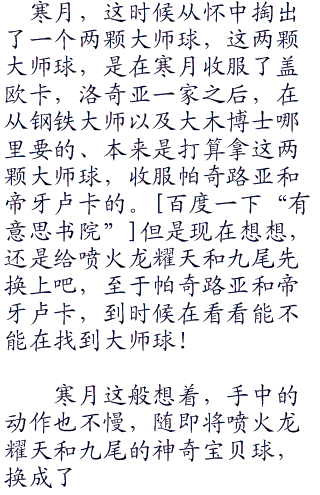 寒月，这时候从怀中掏出
了一个两颗大师球，这两颗
大师球，是在寒月收服了盖
欧卡，洛奇亚一家之后，在
从钢铁大师以及大木博士哪
里要的、本来是打算拿这两
颗大师球，收服帕奇路亚和
帝牙卢卡的。[百度一下“有
意思书院”]但是现在想想，
还是给喷火龙耀天和九尾先
换上吧，至于帕奇路亚和帝
牙卢卡，到时候在看看能不
能在找到大师球！
寒月这般想着，手中的
动作也不慢，随即将喷火龙
耀天和九尾的神奇宝贝球，
换成了